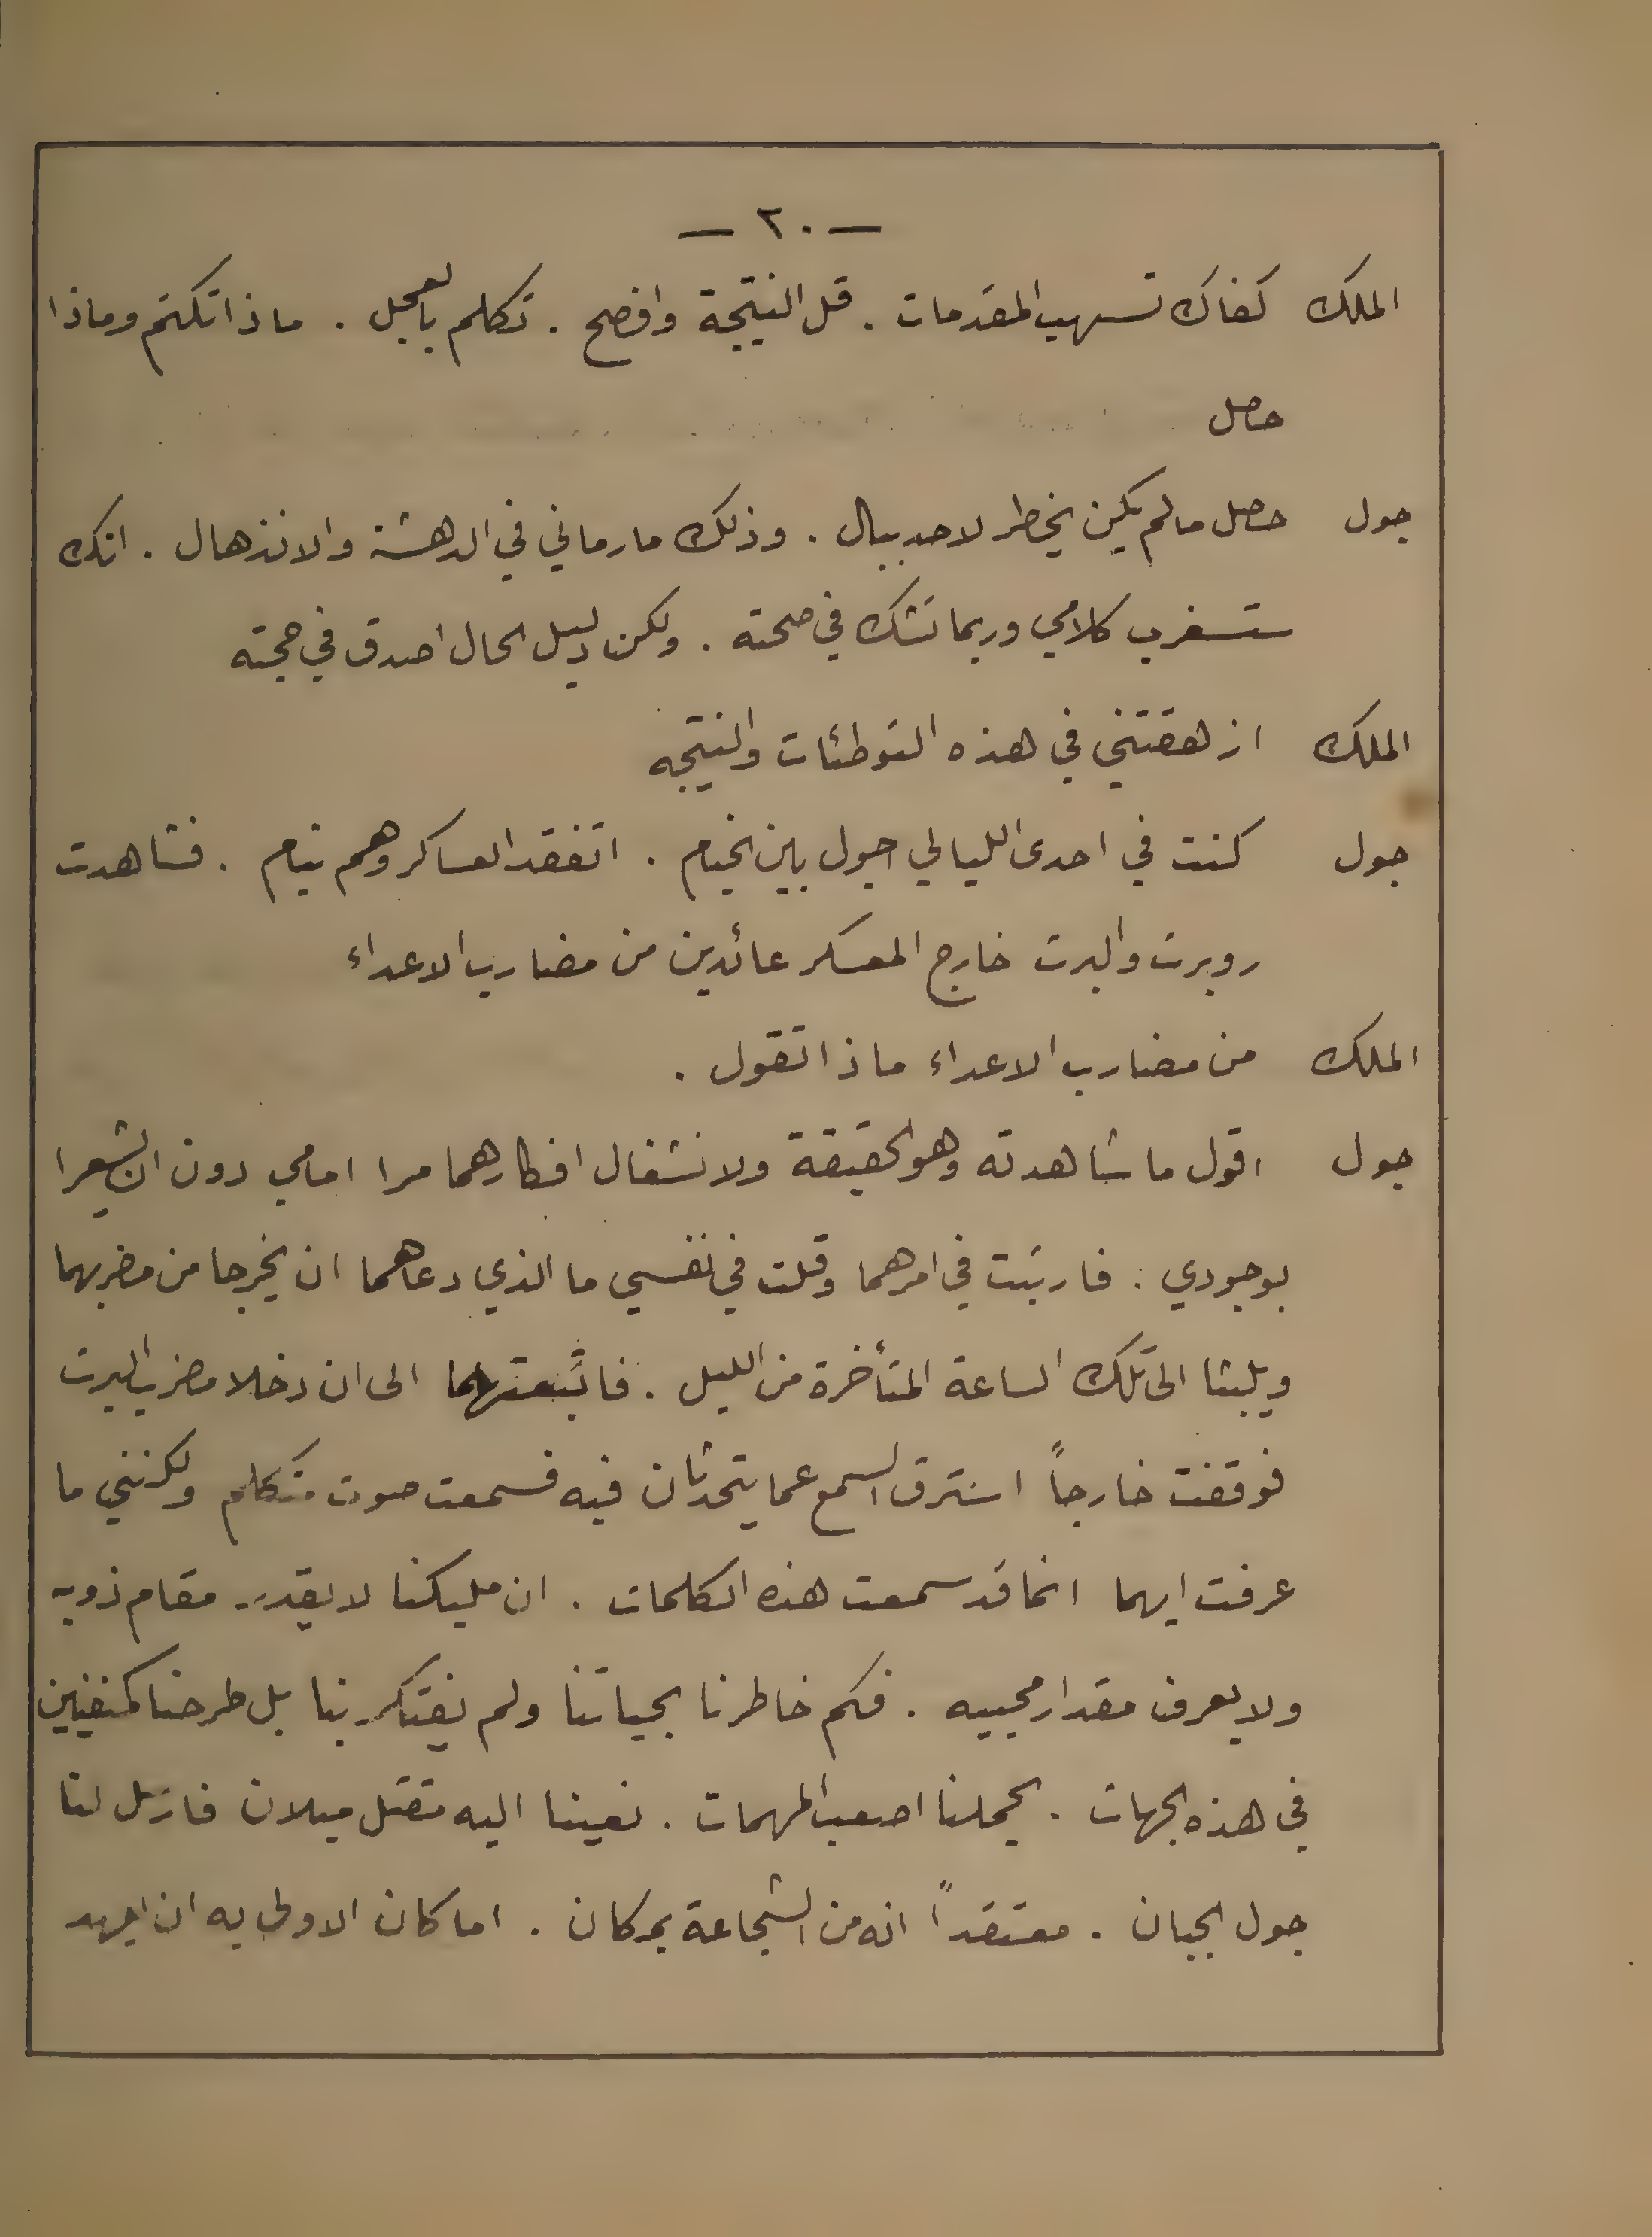 — ٢٠ —
الملك كفاك تسهب المقدمات . قل النتيجة وافصح . تكلم بالعجل . ماذا تكتم وماذا
حصل
جول حصل مالم يكن يخطر لاحد ببال . وذلك مارماني في الدهشة والانذهال . انك
ستسغرب كلامي وربما تشك في صحته . ولكن دليل الحال اصدق في حجته
الملك ازهقتني في هذه التوطئات والنتيجه
جول كنت في احدى الليالي اجول بين الخيام . اتفقد العساكر وهم نيام . فشاهدت
روبرت والبرت خارج المعسكر عائدين من مضارب الاعداء
الملك من مضارب الاعداء ماذا تقول .
جول اقول ما شاهدته وهو الحقيقة ولانشغال افكارهما مرا امامي دون ان يشعرا
بوجودي . فارتبت في امرهما وقلت في نفسي ما الذي دعاهما ان يخرجا من مضربهما
ويلبثا الى تلك الساعة المتأخرة من الليل . فاتَّبعتهما الى ان دخلا مضرب البرت
فوقفت خارجاً استرق السمع عما يتحدثان فيه فسمعت صوت متكلم ولكنني ما
عرفت ايهما انما قد سمعت هذه الكلمات . ان مليكنا لا يقدر مقام ذويه
ولا يعرف مقدار محبيه . فكم خاطرنا بحياتنا ولم يفتكر بنا بل طرحنا كمنفيين
في هذه الجهات . يحملنا اصعب المهمات . نعينا اليه مقتل ميلان فارسل لنا
جول الجبان . معتقداً انه من الشجاعة بمركان . اما كان الاولى به ان